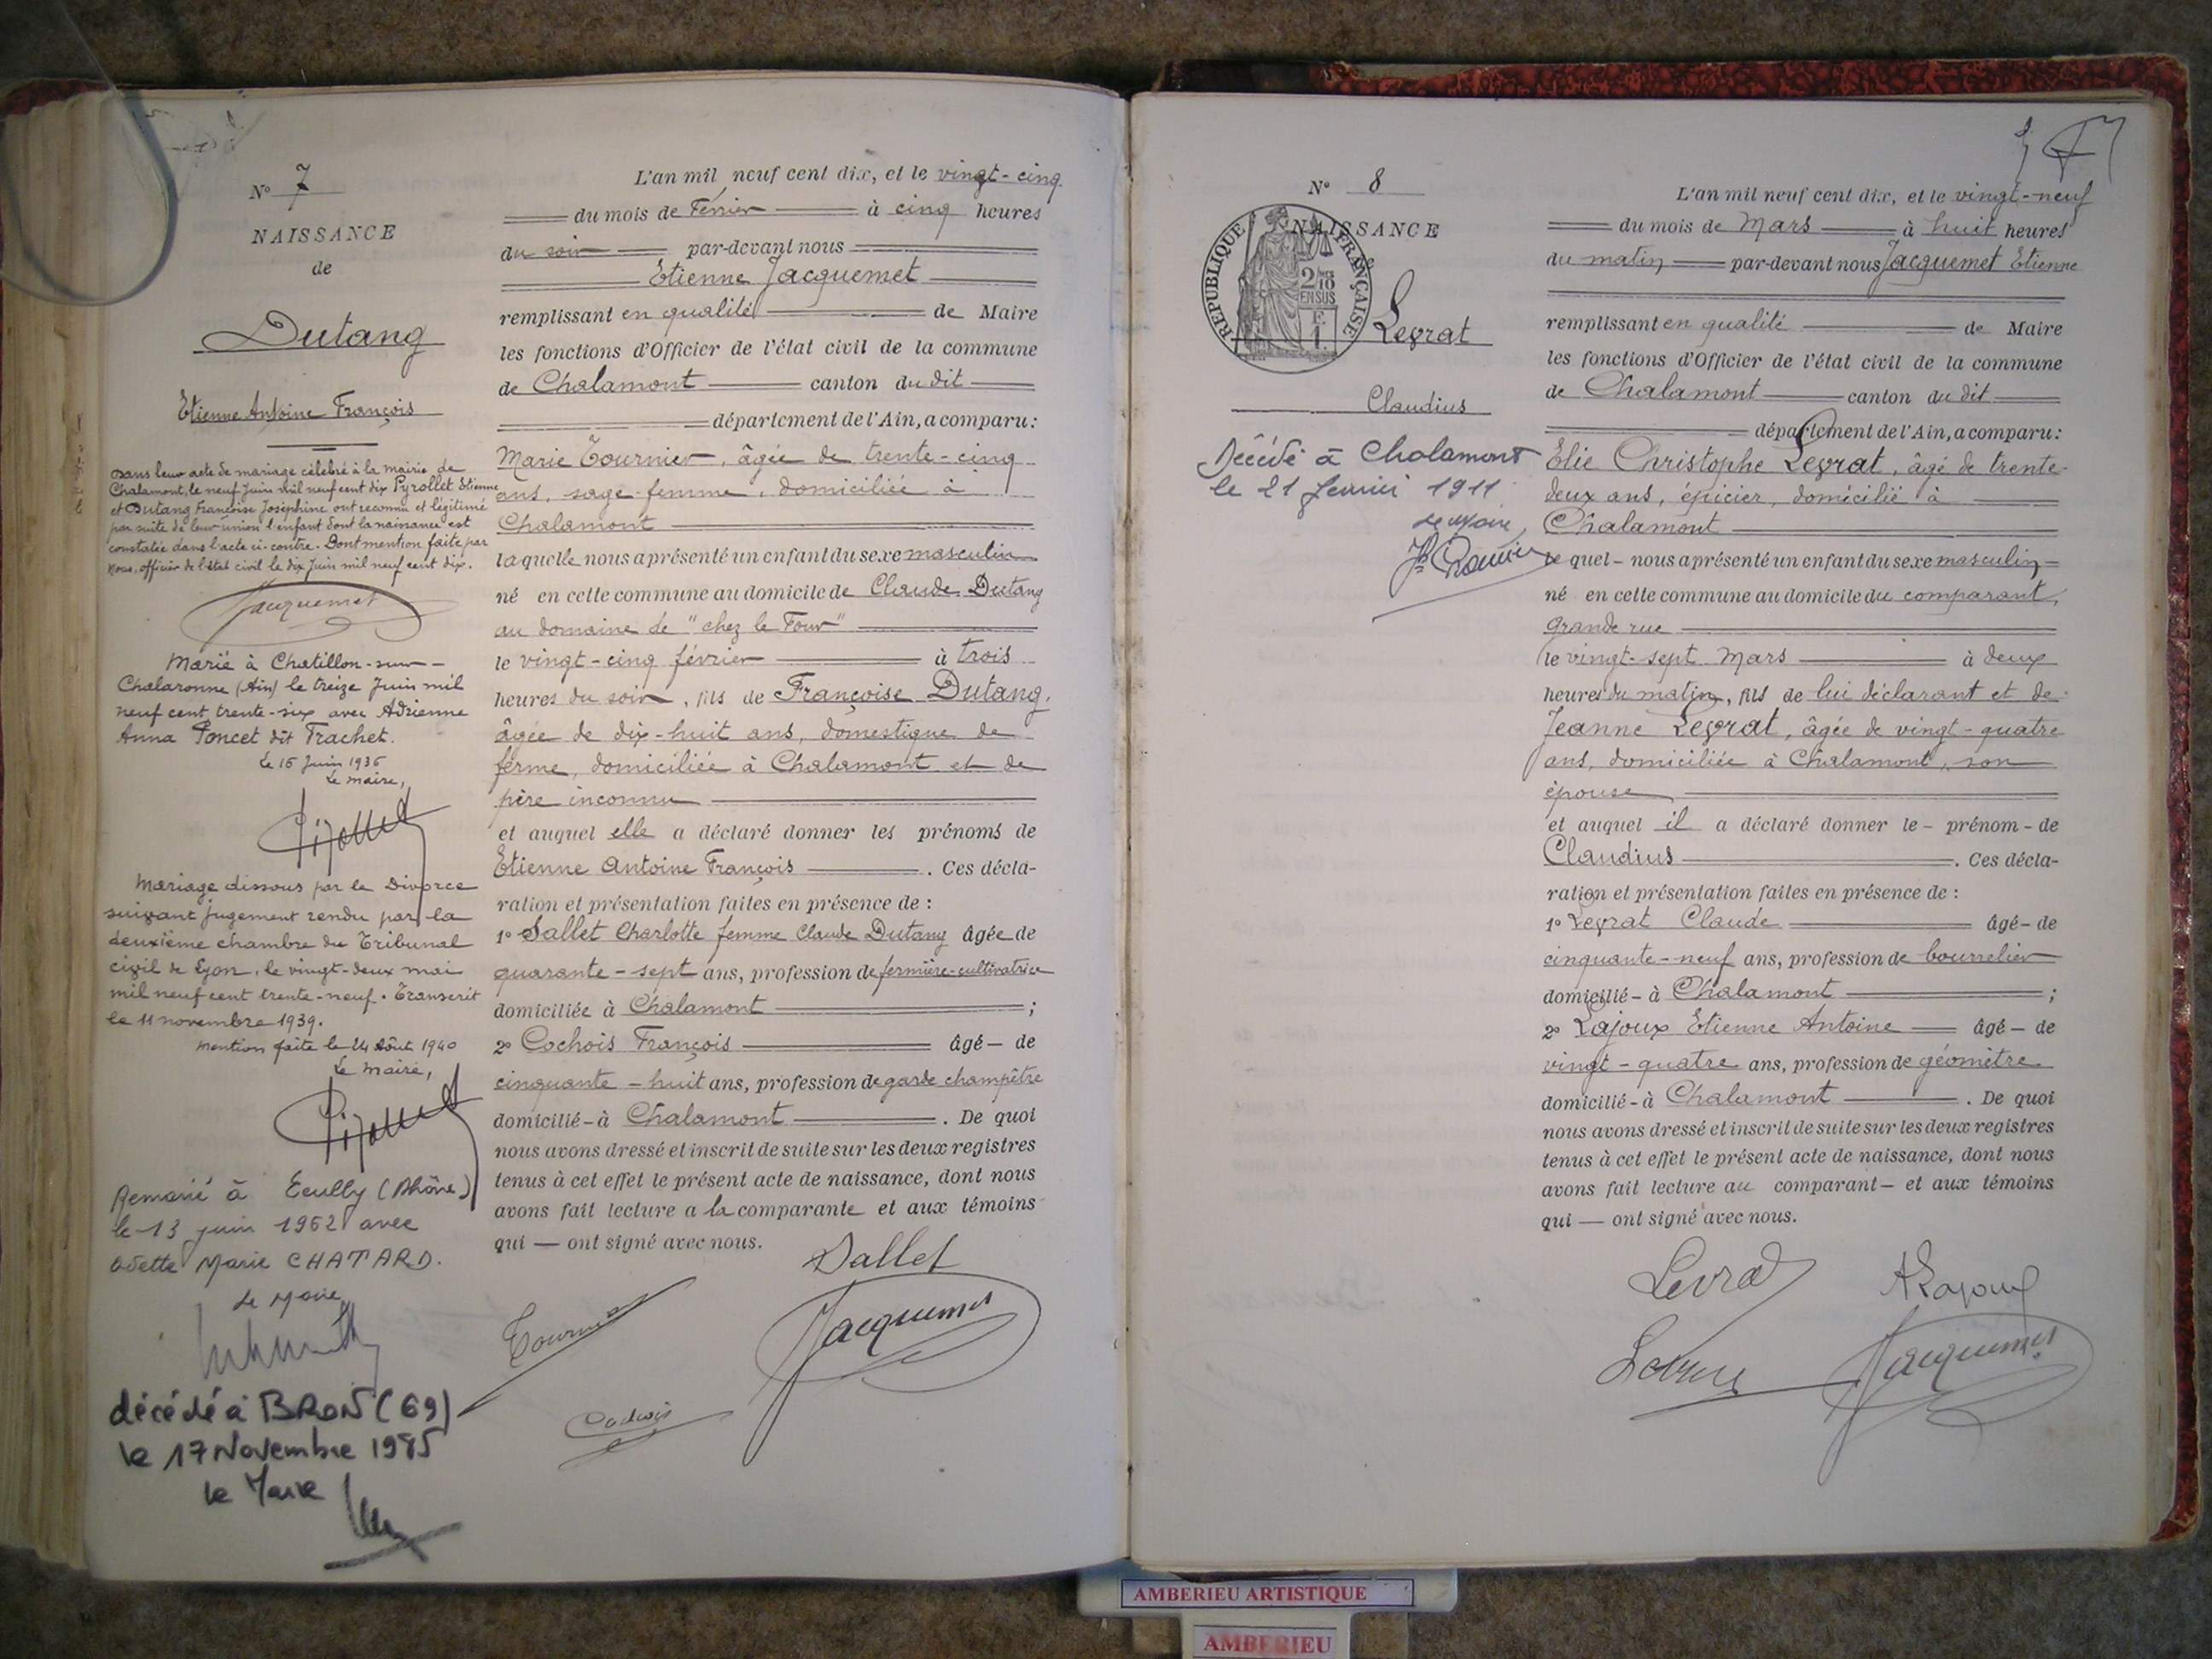 N° 7
NAISSANCE
de
Dutang
Etienne Antoine François
Dans leur acte de mariage célébré à la mairie de
Chalamont, le neuf Juin mil neuf cent dix Pyrollet Etienne
et Dutang Françoise Joséphine ont reconnu et légitimé
par suite de leur union l'enfant dont la naissance est
constatée dans l'acte ci-contre. Dont mention faite par
Nous, officier de l'état civil le dix Juin mil neuf cent dix.
Jacquemet
Marié à Chatillon-sur-
Chalaronne (Ain) le treize Juin mil
neuf cent trente-six avec Adrienne
Anna Poncet dit Trachet.
Le 16 Juin 1936
Le Maire,
Mariage dissous par le Divorce
suivant jugement rendu par la
deuxième chambre du Tribunal
civil de Lyon, le vingt-deux mai
mil neuf cent trente-neuf. Transcrit
le 11 novembre 1939.
Mention faite le 24 Août 1940
Le Maire,
Remarié à Ecully (Rhône)
le 13 juin 1962 avec
Odette Marie CHATARD.
Le Maire
décédé à BRON (69)
le 17 Novembre 1985
le Maire
L'an mil neuf cent dix, et le vingt-cinq
du mois de Février à cinq heures
du soir par-devant nous
Etienne Jacquemet
remplissant en qualité de Maire
les fonctions d'Officier de l'état civil de la commune
de Chalamont canton du dit
département de l'Ain, a comparu:
Marie Tournier, âgée de trente-cinq
ans, sage-femme, domiciliée à
Chalamont
laquelle nous a présenté un enfant du sexe masculin
né en cette commune au domicile de Claude Dutang
au domaine de "chez le Four"
le vingt-cinq février à trois
heures du soir, fils de Françoise Dutang,
âgée de dix-huit ans, domestique de
ferme, domiciliée à Chalamont et de
père inconnu
et auquel elle a déclaré donner les prénoms de
Etienne Antoine François. Ces décla-
ration et présentation faites en présence de :
1° Sallet Charlotte femme Claude Dutang âgée de
quarante-sept ans, profession de fermière-cultivatrice
domiciliée à Chalamont ;
2° Cochois François âgé - de
cinquante-huit ans, profession de garde champêtre
domicilié - à Chalamont. De quoi
nous avons dressé et inscrit de suite sur les deux registres
tenus à cet effet le présent acte de naissance, dont nous
avons fait lecture a la comparante et aux témoins
qui — ont signé avec nous.
Sallet
Tournier
Jacquemet
Cochois
N° 8
NAISSANCE
de
RÉPUBLIQUE FRANÇAISE
2/10
EN SUS
Levrat
Claudius
Décédé à Chalamont
le 21 février 1911
Le Maire,
L'an mil neuf cent dix, et le vingt-neuf
du mois de Mars à huit heures
du matin par-devant nous Jacquemet Etienne
remplissant en qualité de Maire
les fonctions d'Officier de l'état civil de la commune
de Chalamont canton du dit
département de l'Ain, a comparu:
Elie Christophe Levrat, âgé de trente-
deux ans, épicier, domicilié à
Chalamont
le quel - nous a présenté un enfant du sexe masculin
né en cette commune au domicile du comparant,
Grande rue
le vingt-sept Mars à deux
heures du matin, fils de lui déclarant et de
Jeanne Levrat, âgée de vingt-quatre
ans, domiciliée à Chalamont, son
épouse
et auquel il a déclaré donner le - prénom - de
Claudius. Ces décla-
ration et présentation faites en présence de :
1° Levrat Claude âgé - de
cinquante-neuf ans, profession de bourrelier
domicilié - à Chalamont ;
2° Lajoux Etienne Antoine âgé - de
vingt-quatre ans, profession de géomètre
domicilié - à Chalamont. De quoi
nous avons dressé et inscrit de suite sur les deux registres
tenus à cet effet le présent acte de naissance, dont nous
avons fait lecture au comparant - et aux témoins
qui — ont signé avec nous.
Levrat
ALajoux
Levrat
Jacquemet
AMBERIEU ARTISTIQUE
AMBERIEU